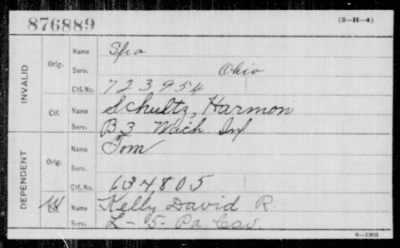 876889
(3-H-4)
INVALID
Orig.
Name Spo
Serv. Ohio
Ctf. No. 723954
Ctf.
Name Schultz, Harmon
Serv. B 3 Mich Inf
DEPENDENT
Orig.
Name Tom
Serv.
Ctf. No. 634,805
Ctf.
Name Kelly David R
Serv. L - 5 - Pa. Cav.